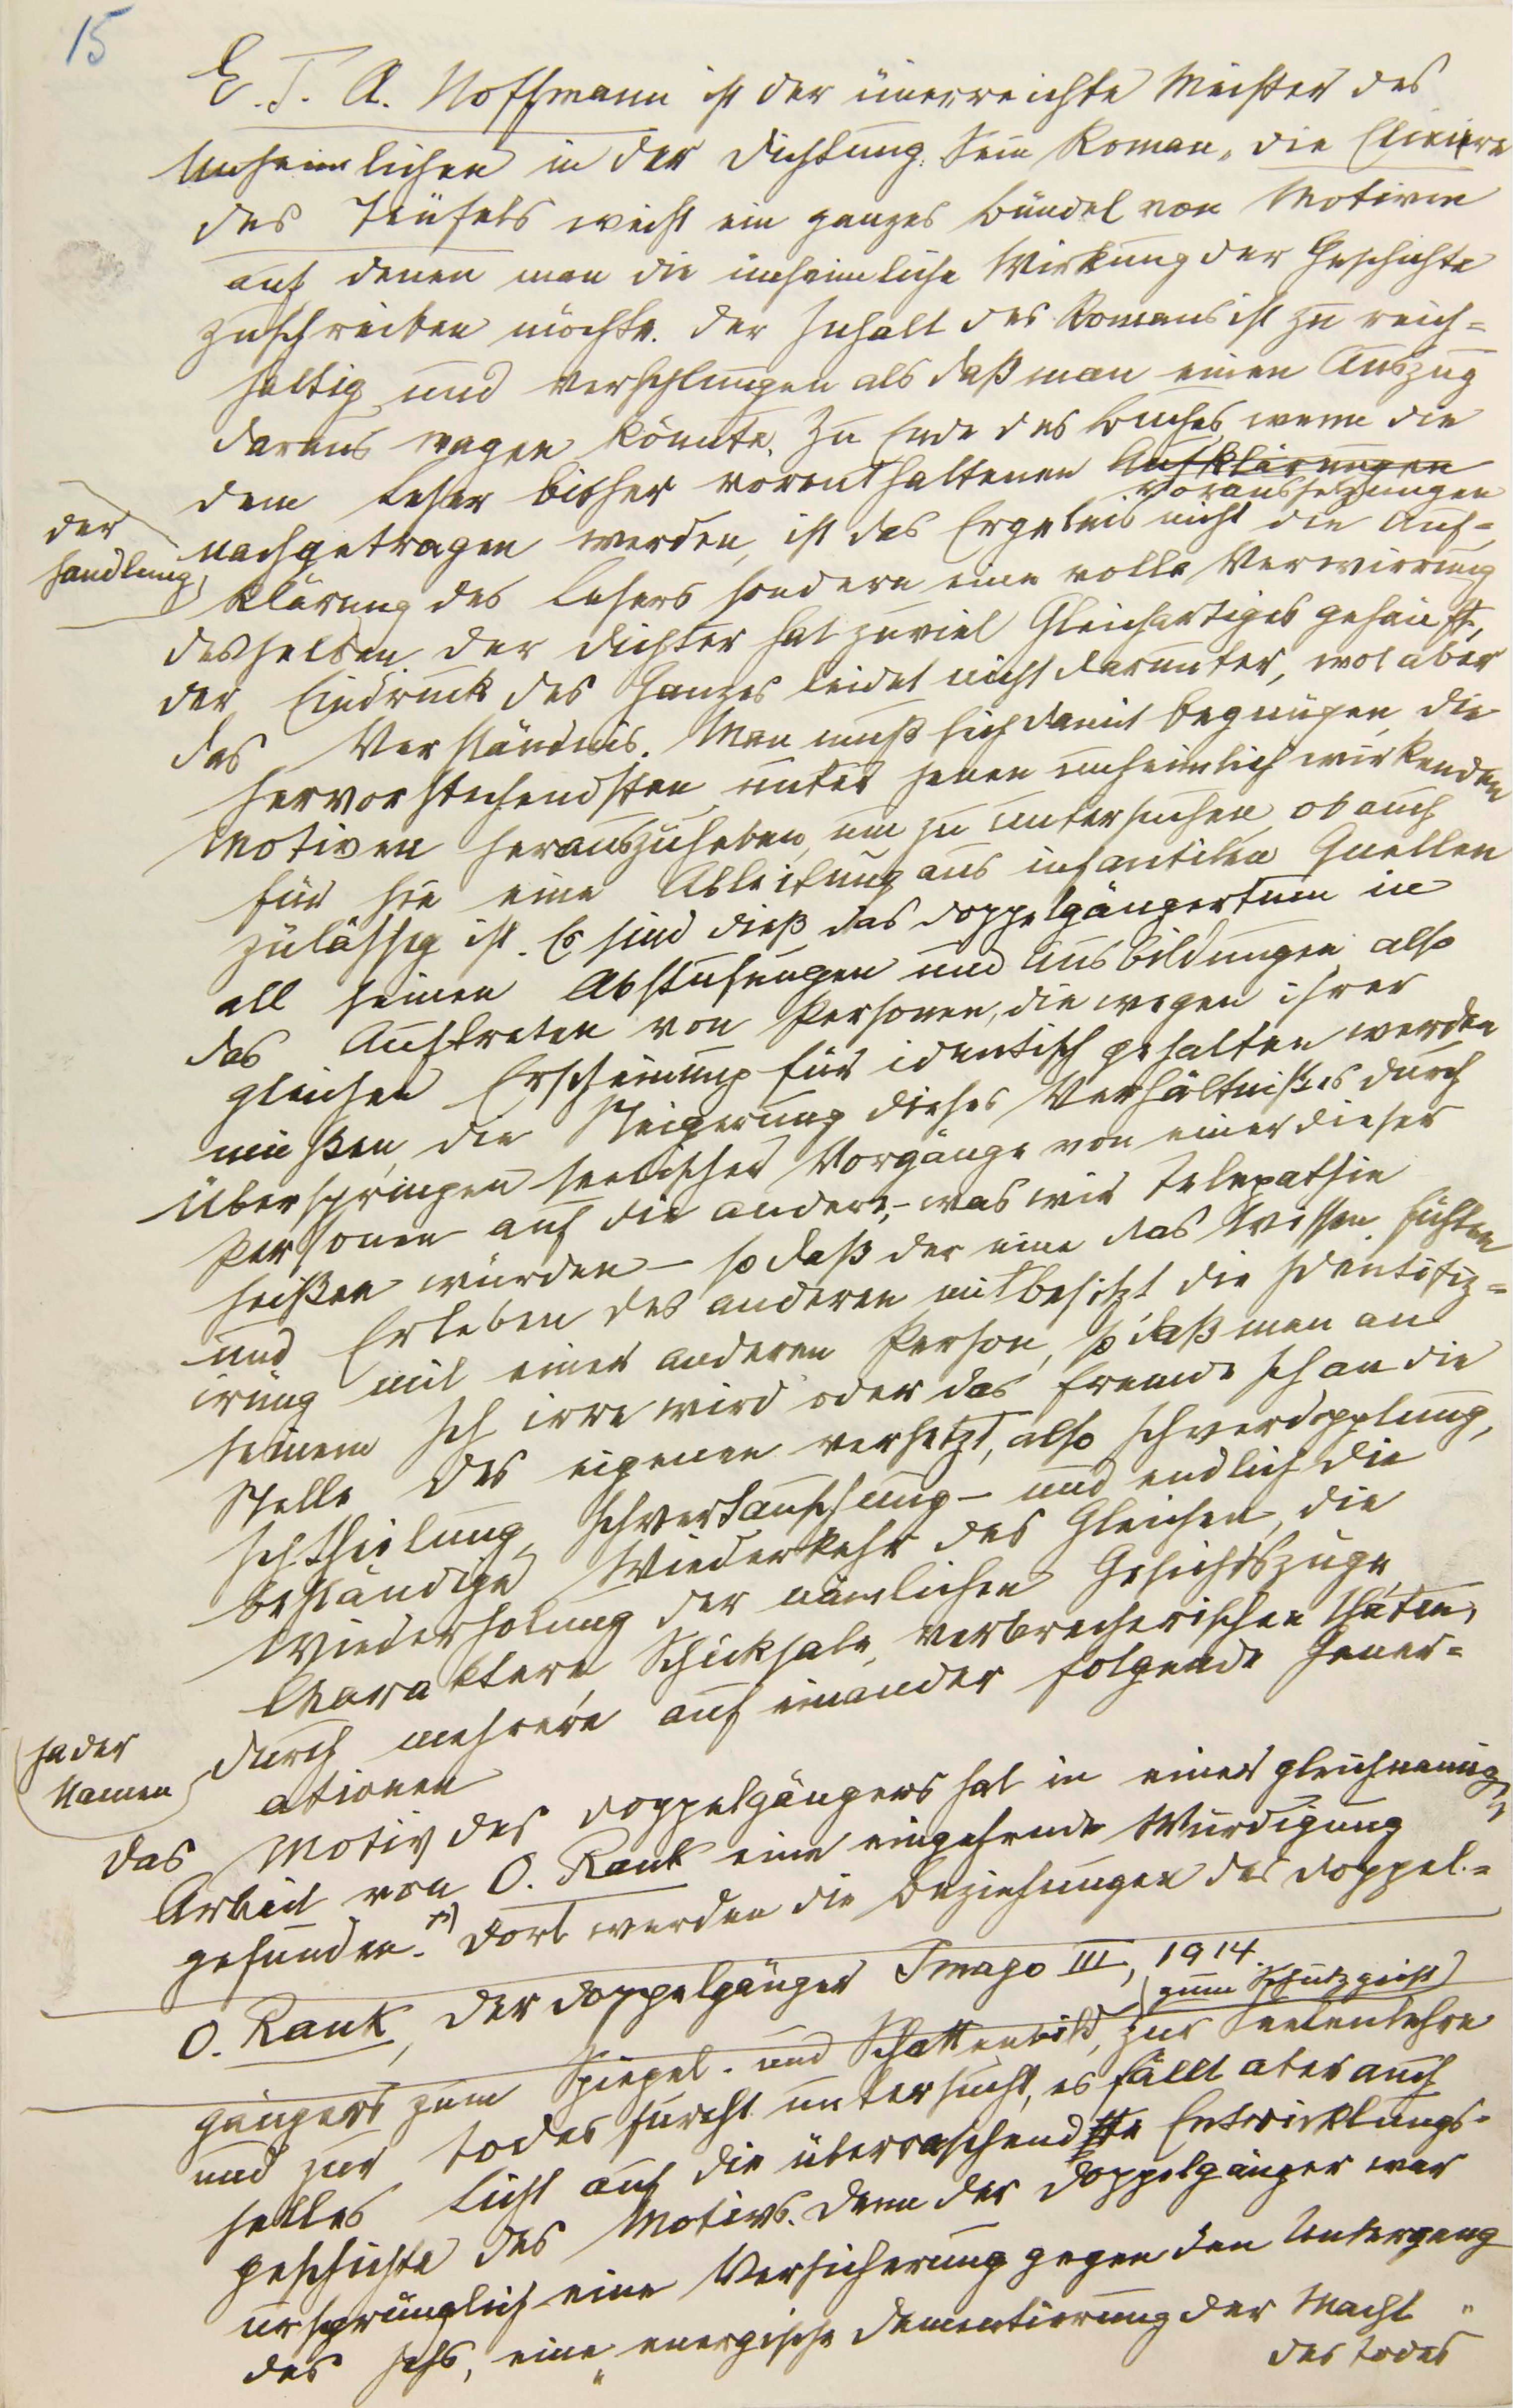 15
E. T. A. Hoffmann ist der unerreichte Meister des
Unheimlichen in der Dichtung. Sein Roman „die Elixire
des Teufels weist ein ganzes Bündel von Motiven
auf, denen man die unheimliche Wirkung der Geschichte
zuschreiben möchte. Der Inhalt des Romans ist zu reich=
haltig und verschlungen als daß man einen Auszug
daraus wagen könnte. Zu Ende des Buches, wenn die
dem Leser bisher vorenthaltenen Aufklärungen
Voraussetzungen
der
Handlung
nachgetragen werden, ist das Ergebnis nicht die Auf=
klärung des Lesers sondern eine volle Verwirrung
desselben. Der Dichter hat zuviel Gleichartiges gehäuft,
der Eindruck des Ganzes leidet nicht darunter, wol aber
das Verständnis. Man muß sich damit begnügen, die
hervorstechendsten unter jenen unheimlich wirkenden
Motiven herauszuheben, um zu untersuchen, ob auch
für sie eine Ableitung aus infantilen Quellen
zuläßig ist. Es sind dieß das Doppelgängertum in
all seinen Abstufungen und Ausbildungen, also
das Auftreten von Personen, die wegen ihrer
gleichen Erscheinung für identisch gehalten werden
müßen, die Steigerung dieses Verhältnißes durch
Überspringen seelischer Vorgänge von einer dieser
Personen auf die andere, – was wir Telepathie
heißen würden – so daß der eine das Wissen, Fühlen
und Erleben des anderen mitbesitzt, die Identifiz=
irung mit einer anderen Person, so daß man an
seinem Ich irre wird oder das fremde Ich an die
Stelle des eigenen versetzt, also Ichverdopplung,
Ichtheilung, Ichvertauschung – und endlich die
beständige Wiederkehr des Gleichen, die
Wiederholung der nämlichen Gesichtszüge,
Charaktere, Schicksale, verbrecherischen Thaten,
ja der
Namen
durch mehrere auf einander folgende Gener=
ationen
Das Motiv des Doppelgängers hat in einer gleichnamigen
Arbeit von O. Rank eine eingehende Würdigung
gefunden. *) Dort werden die Beziehungen des Doppel=
O. Rank, Der Doppelgänger Imago III, 1914.
zum Schutzgeist
gängers zum Spiegel- und Schattenbild, zur Seelenlehre
und zur Todesfurcht untersucht, es fällt aber auch
helles Licht auf die überraschendste Entwicklungs-
geschichte des Motivs. Denn der Doppelgänger war
ursprünglich eine Versicherung gegen den Untergang
des Ichs, eine „energische Dementierung der Macht
des Todes“